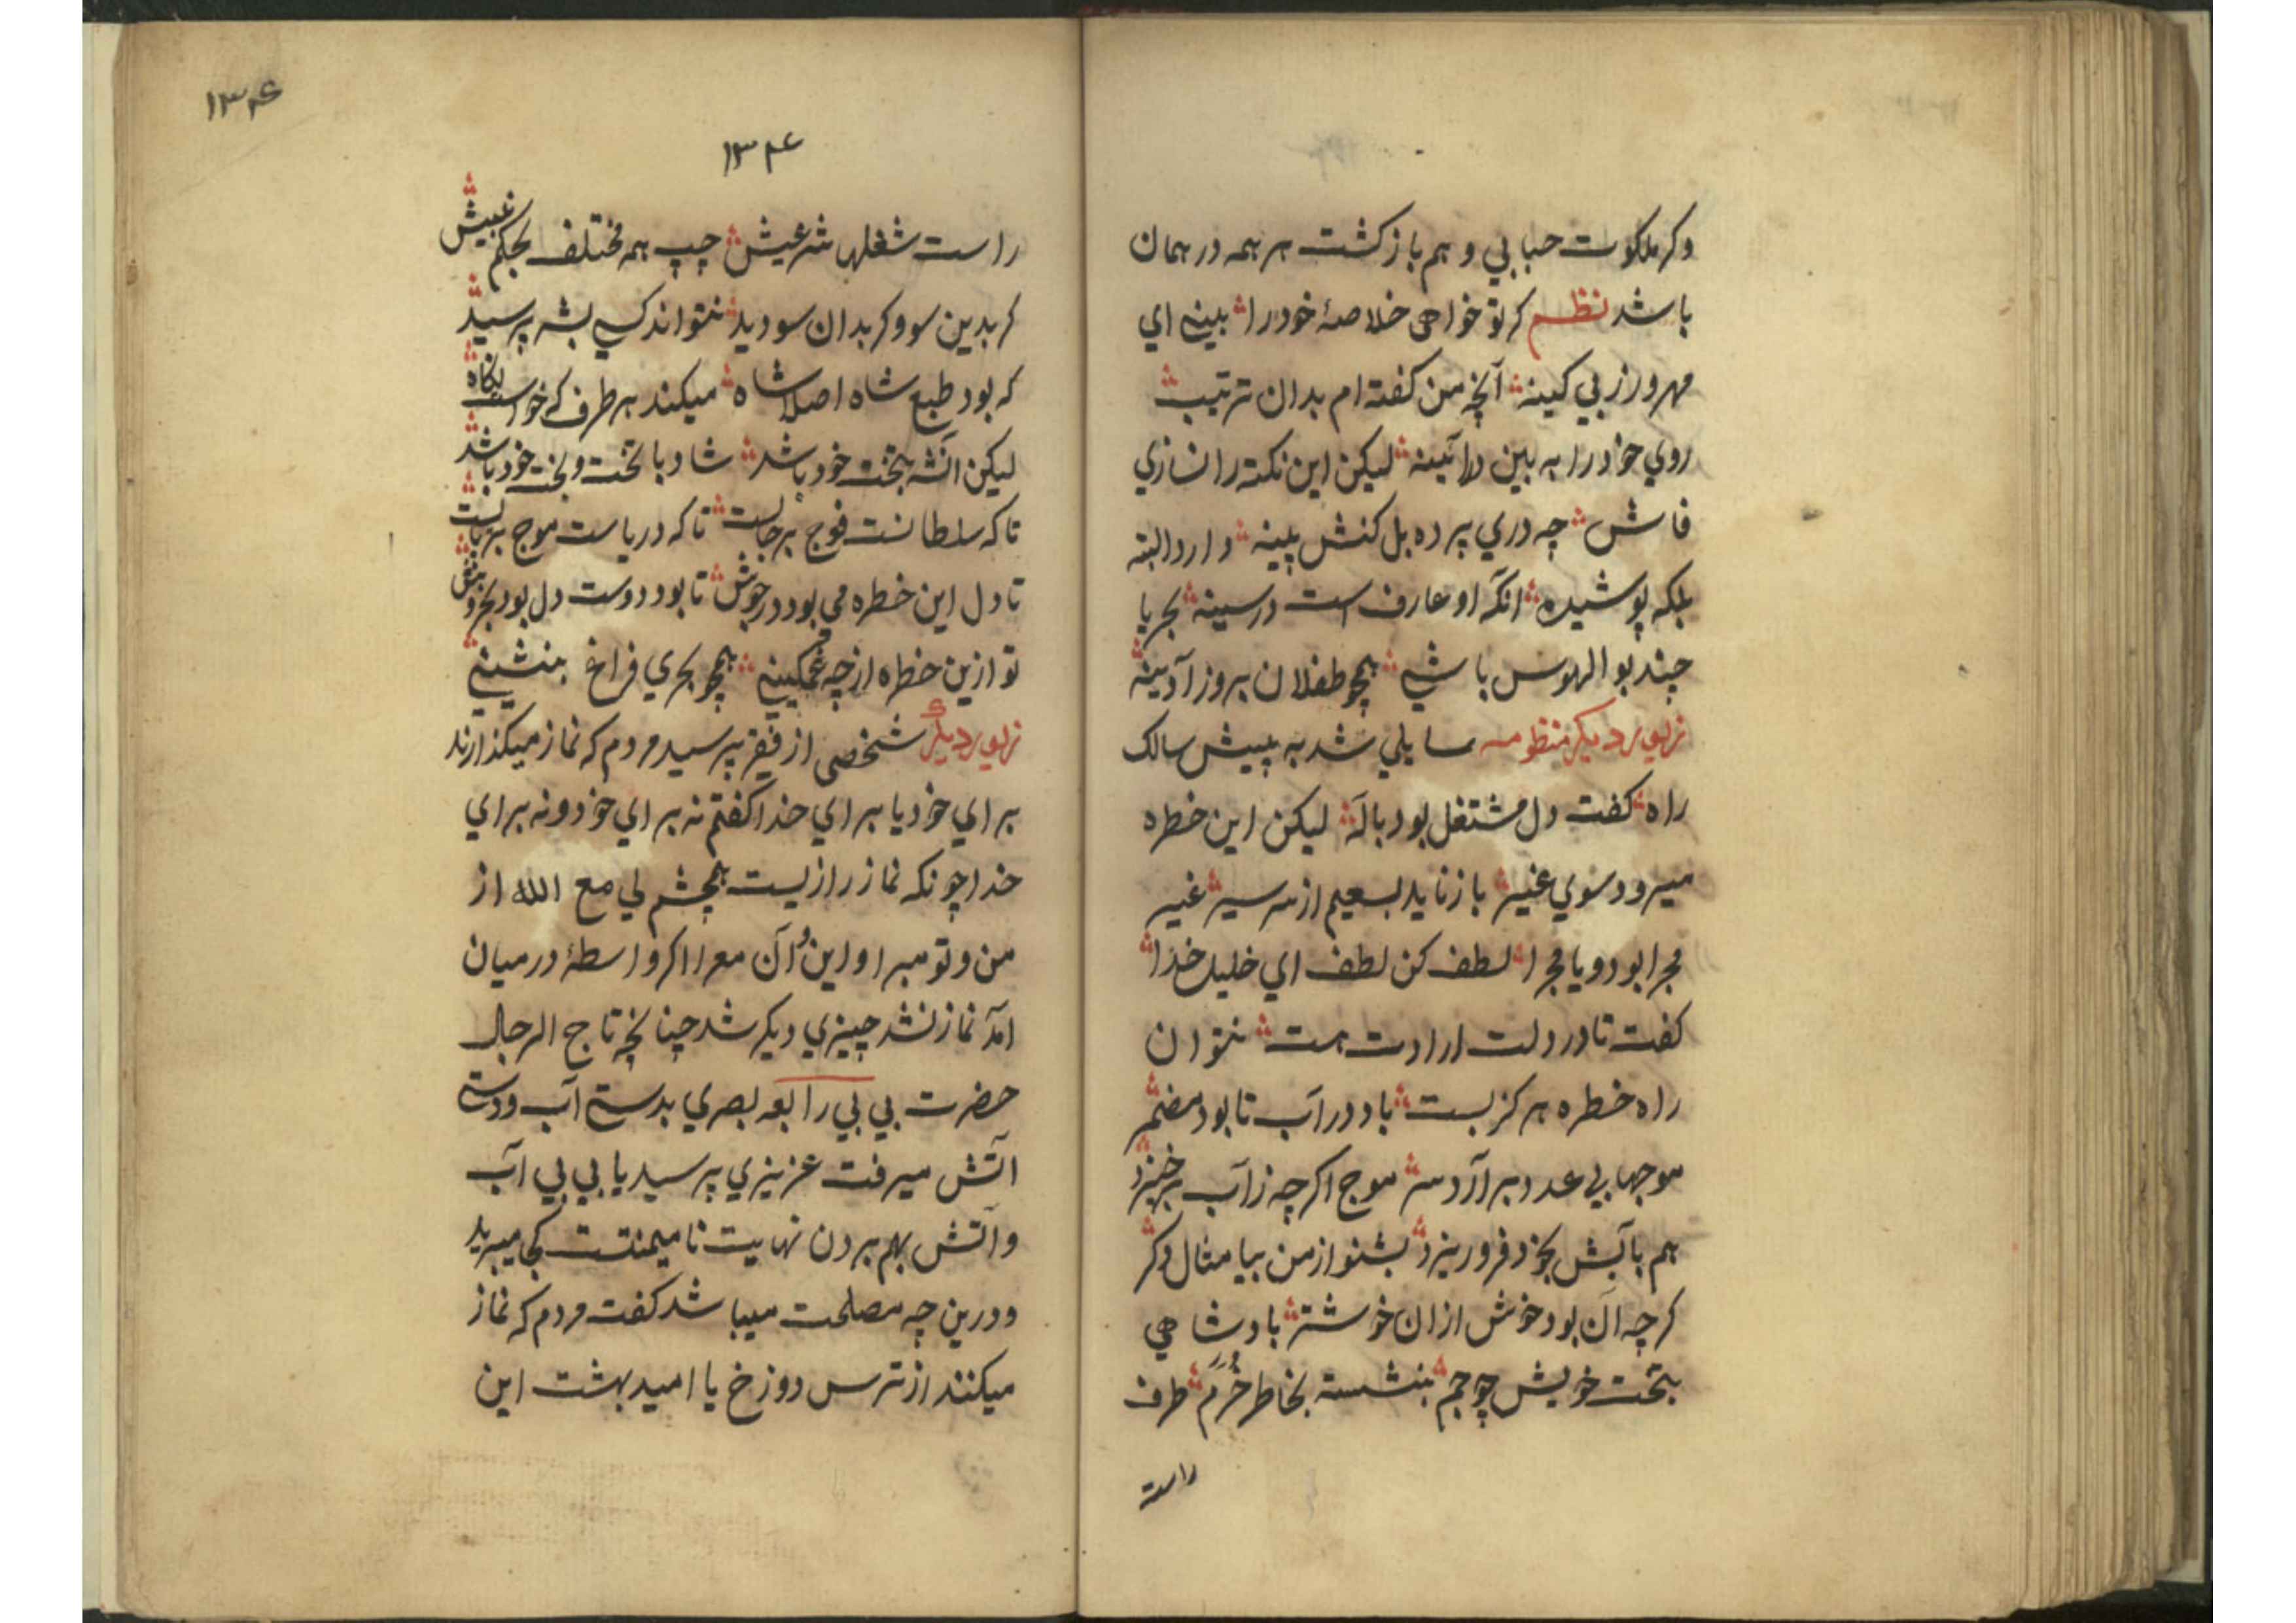 وکر ملکوت حبابي و هم باز کشت هر همه در همان
باشد نظم کر تو خواهي خلاصهٔ خود را بیني اي
مهرورز بي کینه آنچه من کفته ام بدان ترتیب
روي خود را به بین در آئینه لیکن این نکته را نسازي
فاش چه دري پرده بل کنش پینه دارد البته
بلکه پوشیده انکه او عارف است در سینه بحریا
چند بوالهوس باشي همچو طفلان بروز آدینه
دیکر منظومه سایلي شد به پیش سالک
راه کفت دل مشتغل بود باله لیکن این خطره
میرود سوي غیر باز ناید بسعیم از سر سیر غیر
مجرا بود و یا مجرا لطف کن لطف اي خلیل خدا
کفت تا در دلت ارادت هست نتوان
راه خطره هرکز بست باد در آب تا بود مضمر
موجهایي عدد برآرد سر موج اکرچه ز آب برخیزد
هم بآبش بخود فرو ریزد بشنو از من بیا مثال دکر
کرچه آن بود خوش ازان خوشتر بادشاهي
بتخت خویش چو جم بنشسته بخاطر خرم طرف
راست
۱۳۴
۱۳۴
راست شغلها شرعیش چپ همه مختلف بحکم غیبش
کر بدین سو وکر بدان سو دید نتواند کسي بشه پرسید
که بود طبع شاه اصلا شاه میکند هر طرف که خواست نکاه
لیکن آنشه بتخت خود باشد شاد با تخت و بخت خود باشد
تا که سلطانست فوج برجاست تا که دریاست موج برپاست
تا دل این خطره مي بود در جوش تا بود دوست دل بود
تو ازین خطره از چه غمکیني همچو بحري فراخ بنشیني
دیکر شخصي از فقیر پرسید مردم که نماز میکذارند
براي خود یا براي خدا کفتم نه براي خود و نه براي
خدا چونکه نماز رازیست بچشم لي مع الله از
من و تو مبرا و این و آن معرا اکر واسطهٔ درمیان
آمد نماز نشد چیزي دیکر شد چنانچه تاج الرجال
حضرت بي بي رابعه بصري بدستي آب و دستي
آتش میرفت عزیزي پرسید یا بي بي آب
و آتش بهم بردن نهایت نا میمنتست کجا میبرید
و درین چه مصلحت میباشد کفت مردم که نماز
میکنند از ترس دوزخ یا امید بهشت این